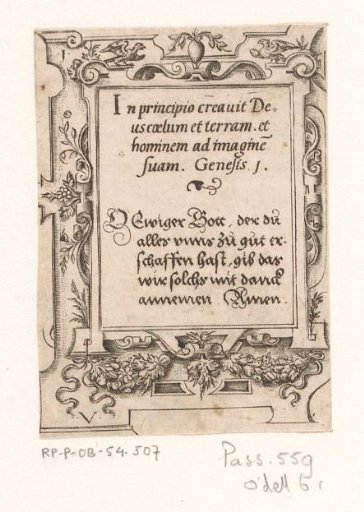 In principio creavit De-
us cœlum et terram. et
hominem ad imaginē
suam. Genesis 1.
O Ewiger Gott, der dū
alles vnns zū gūt er-
schaffen hast, gib das
wir solchs mit danck
annemen Amen.
V
RP-P-OB-54.507
Pass. 559
O'Dell 6